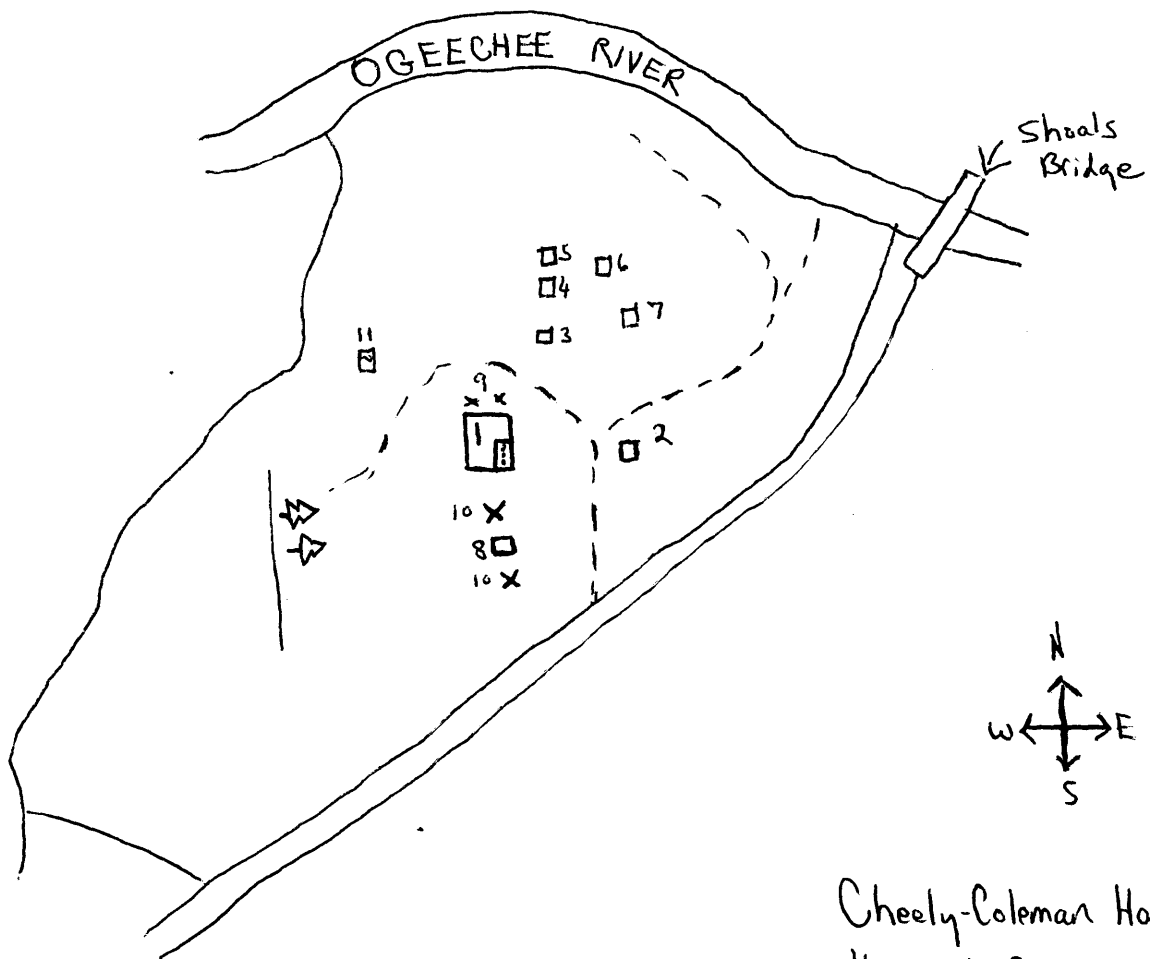 OGEECHEE RIVER
Shoals
Bridge
5
6
4
7
3
11
9
1
2
10
8
10
N
W E
S
Cheely-Coleman Ho